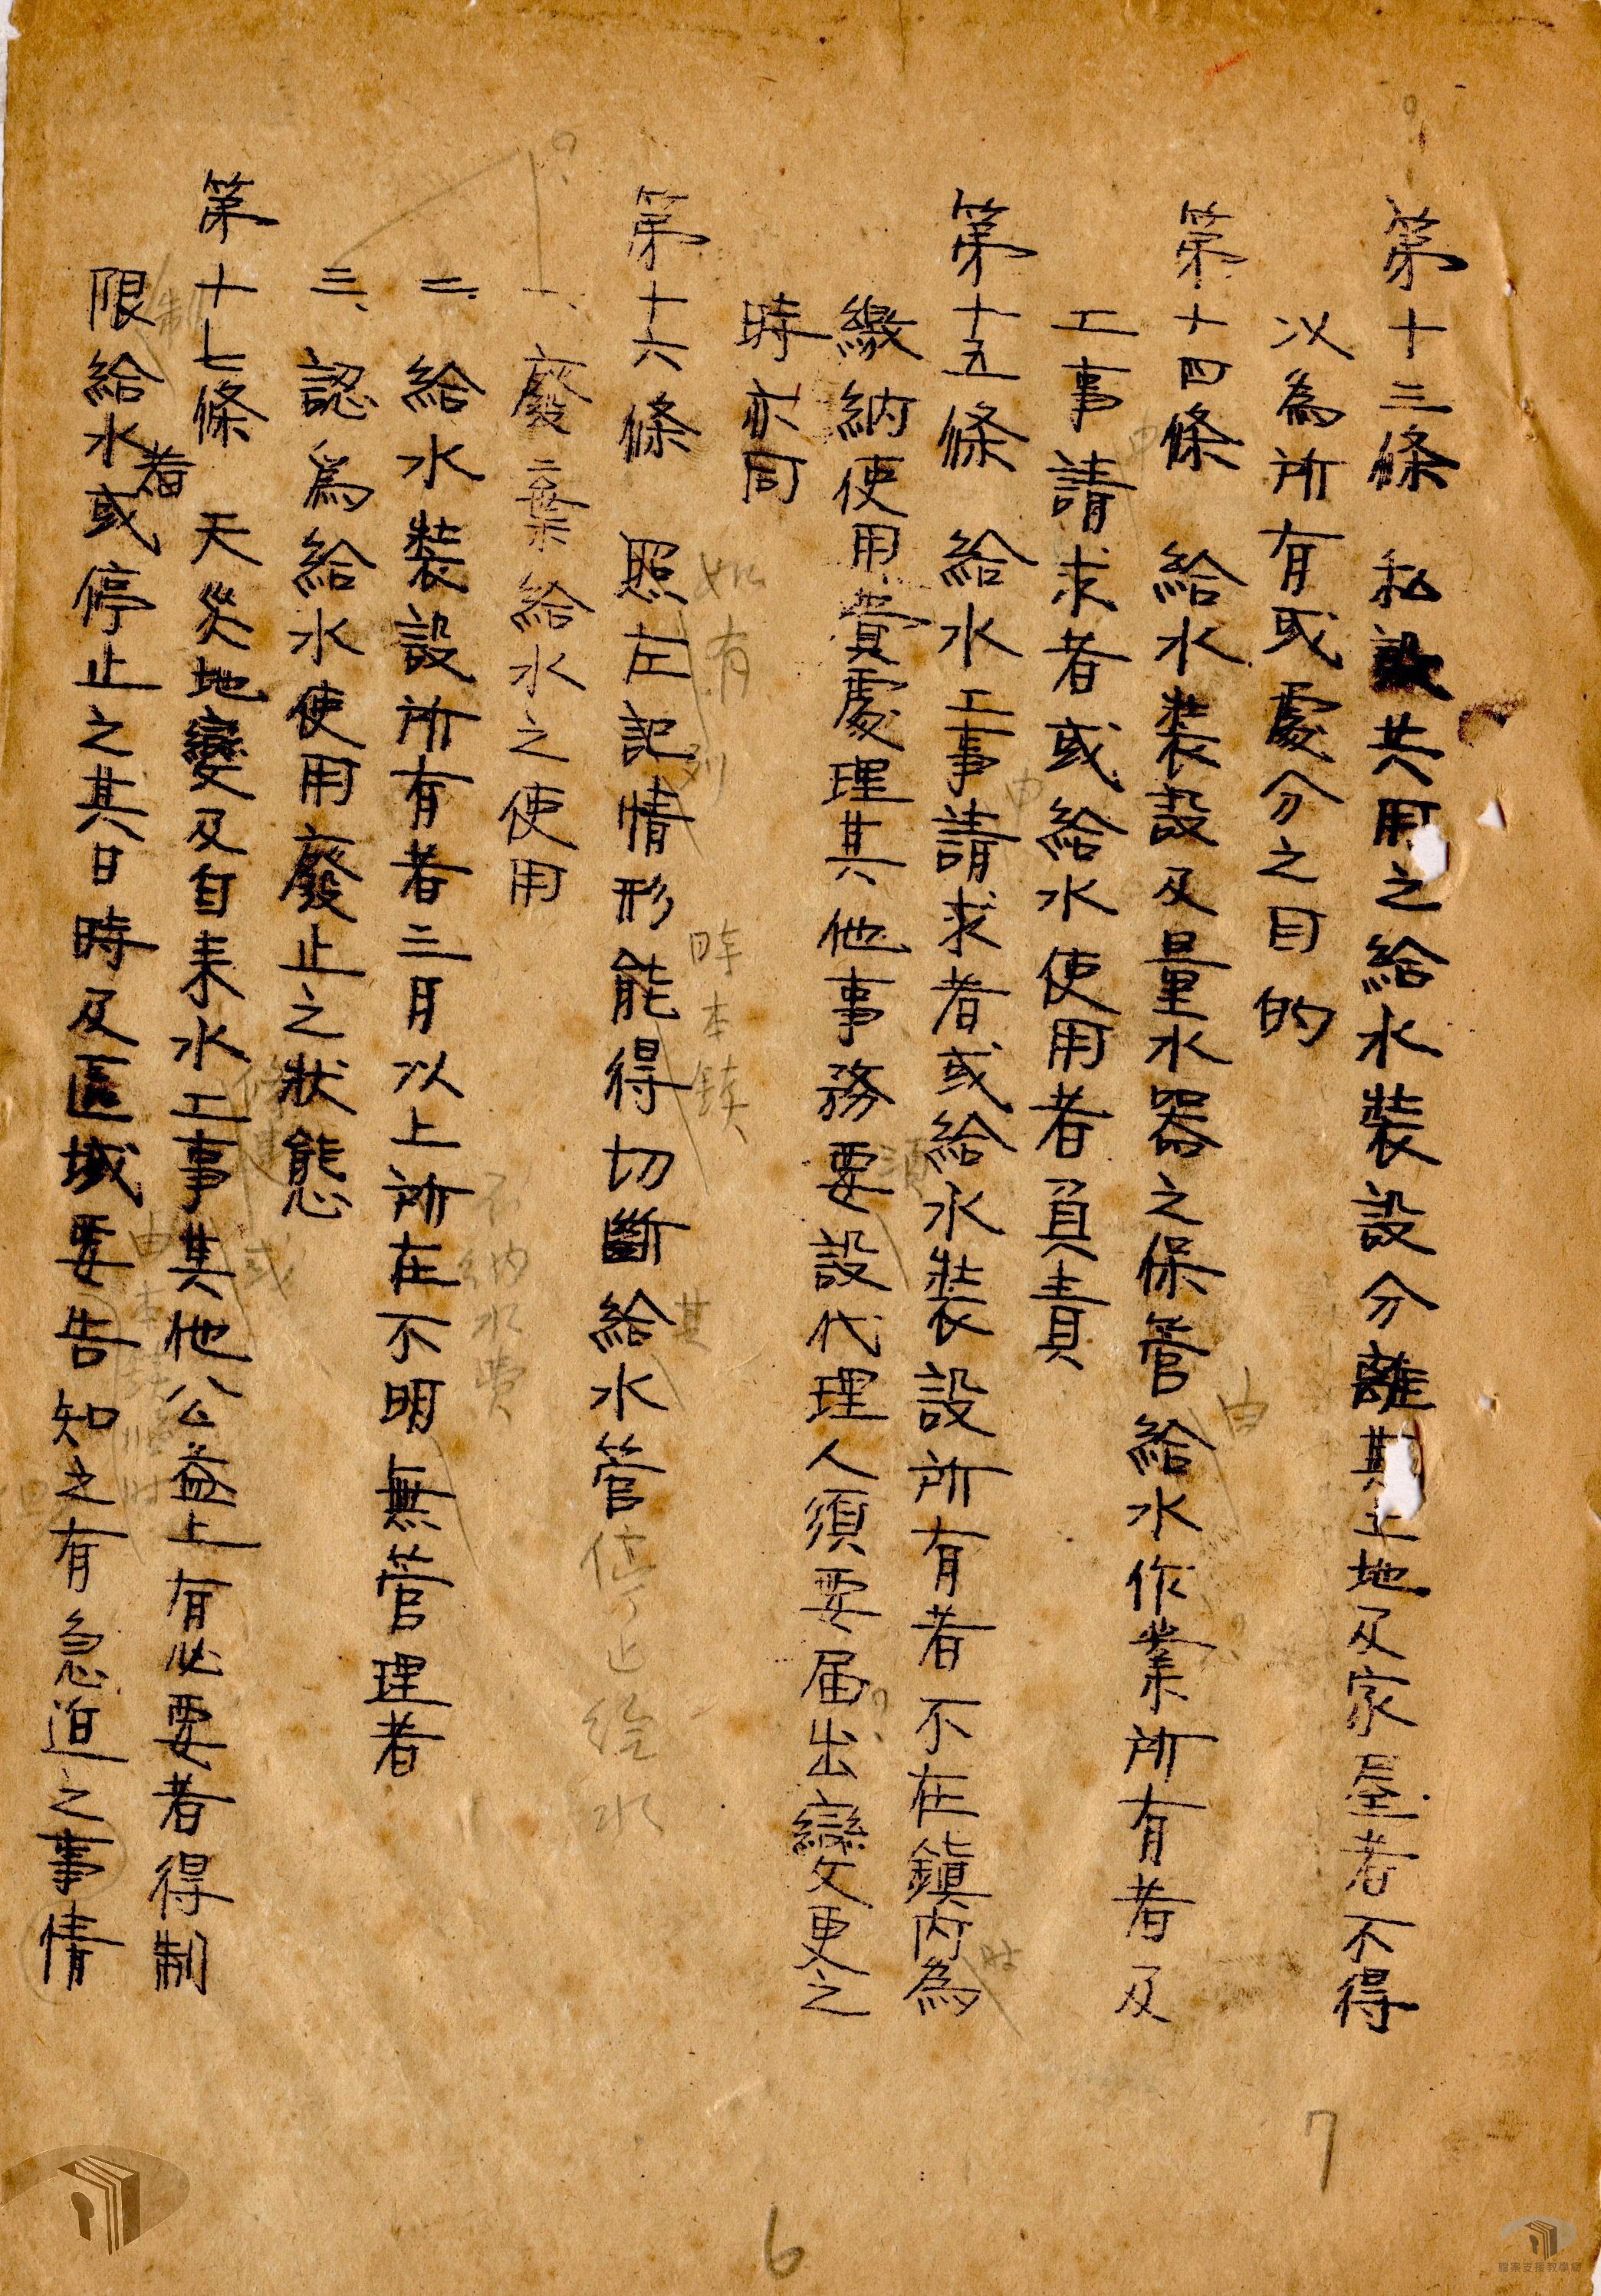 第十三條　私設共用之給水裝設分離其土地及家屋者不得
以為所有或處分之目的
第十四條　給水裝設及量水器之保管給水作業所有者及
工事請求者或給水使用者負責
第十五條　給水工事請求者或給水裝設所有者不在鎮內為
繳納使用費處理其他事務要設代理人須要届出變更之
時亦同
第十六條　照左記情形能得切斷給水管
停止給水
如有
列
時本鎮
其
一、廢棄給水之使用
二、給水裝設所有者三月以上所在不明無管理者
不納水費
三、認為給水使用廢止之狀態
第十七條　天災地變及自来水工事其他公益上有必要者得制
或
限給水或停止之其日時及區域要告知之有急迫之事情
者
制
由本鎮
由
申
申
須
時
7
6
檔案支援教學網